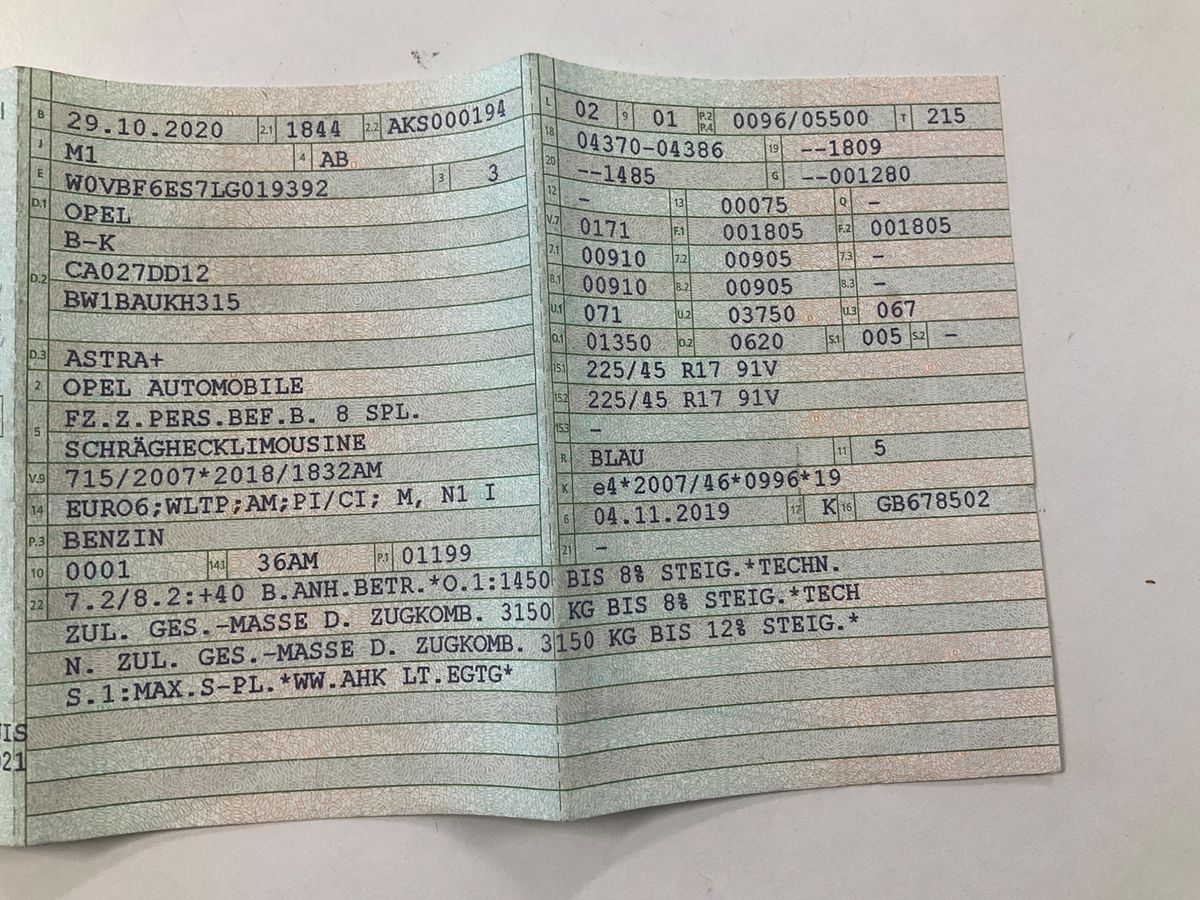 B 29.10.2020 2.1 1844 2.2 AKS000194
J M1 4 AB
E W0VBF6ES7LG019392 3 3
D.1 OPEL
B-K
D.2 CA027DD12
BW1BAUKH315
D.3 ASTRA+
2 OPEL AUTOMOBILE
5 FZ.Z.PERS.BEF.B. 8 SPL.
SCHRÄGHECKLIMOUSINE
V.9 715/2007*2018/1832AM
14 EURO6;WLTP;AM;PI/CI; M, N1 I
P.3 BENZIN
10 0001 14.1 36AM P.1 01199
L 02 9 01 P.2 P.4 0096/05500 T 215
18 04370-04386 19 --1809
20 --1485 G --001280
12 - 13 00075 Q -
V.7 0171 F.1 001805 F.2 001805
7.1 00910 7.2 00905 7.3 -
8.1 00910 8.2 00905 8.3 -
U.1 071 U.2 03750 U.3 067
O.1 01350 O.2 0620 S.1 005 S.2 -
15.1 225/45 R17 91V
15.2 225/45 R17 91V
15.3 -
R BLAU 11 5
K e4*2007/46*0996*19
6 04.11.2019 17 K 16 GB678502
21 -
22 7.2/8.2:+40 B.ANH.BETR.*O.1:1450 BIS 8% STEIG.*TECHN.
ZUL. GES.-MASSE D. ZUGKOMB. 3150 KG BIS 8% STEIG.*TECH
N. ZUL. GES.-MASSE D. ZUGKOMB. 3150 KG BIS 12% STEIG.*
S.1:MAX.S-PL.*WW.AHK LT.EGTG*